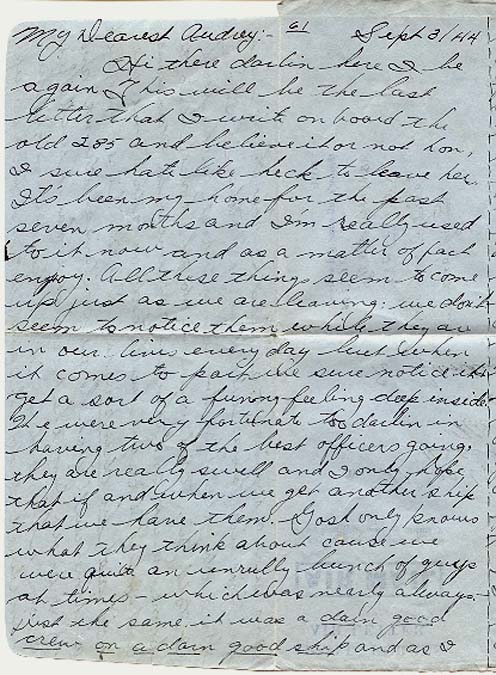 My Dearest Audrey:- 61 Sept 3/44
Hi there darlin here I be
again This will be the last
letter that I write on board the
old 285 and believe it or not hon,
I sure hate like heck to leave her.
It's been my home for the past
seven months and I'm really used
to it now and as a matter of fact
enjoy. All these things seem to come
up just as we are leaving; we don't
seem to notice them while they are
in our lives every day but when
it comes to part we sure notice it.
get a sort of a funny feeling deep inside.
We were very fortunate too darlin in
having two of the best officers going,
they are really swell and I only hope
that if and when we get another ship
that we have them. Gosh only knows
what they think about cause we
were quite an unrully bunch of guys
at times - which was nearly always.
just the same it was a darn good
crew on a darn good ship and as I